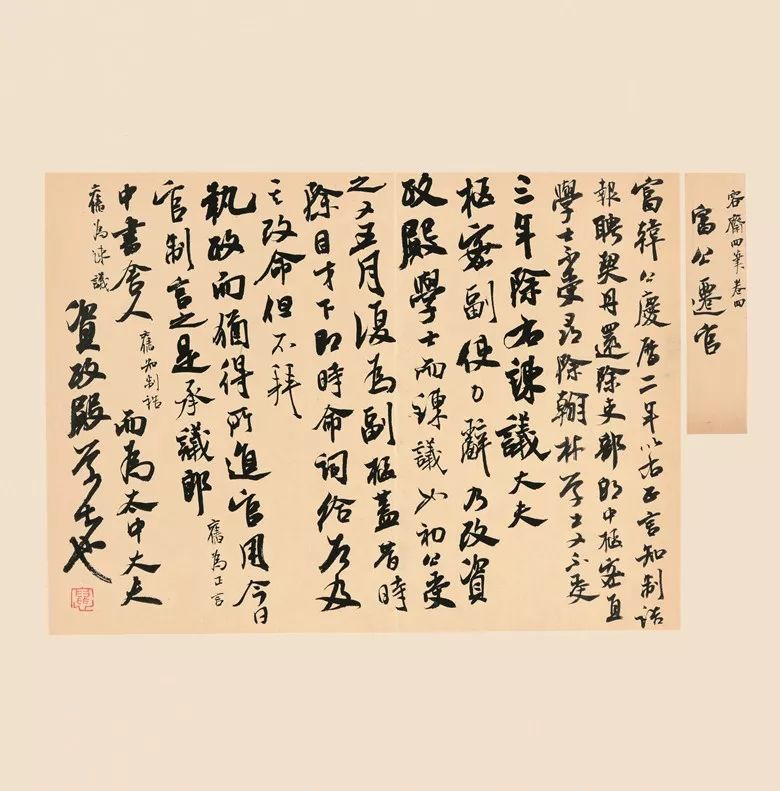 容齋四筆卷四
富公遷官
富韓公慶曆二年以右正言知制誥
報聘契丹還除吏部郎中樞密直
學士不受尋除翰林学士又不受
三年除右諫議大夫
樞密副使力辭乃改資
政殿學士而諫議如初公受
之又五月復為副樞蓋昔時
除目才下即時命詞給告及
其改命但不拜
執政而猶得所進官用今日
官制言之是承議郎 舊為正言
中書舍人 舊知制誥 而為太中大夫
舊為諫議 資政殿学士也